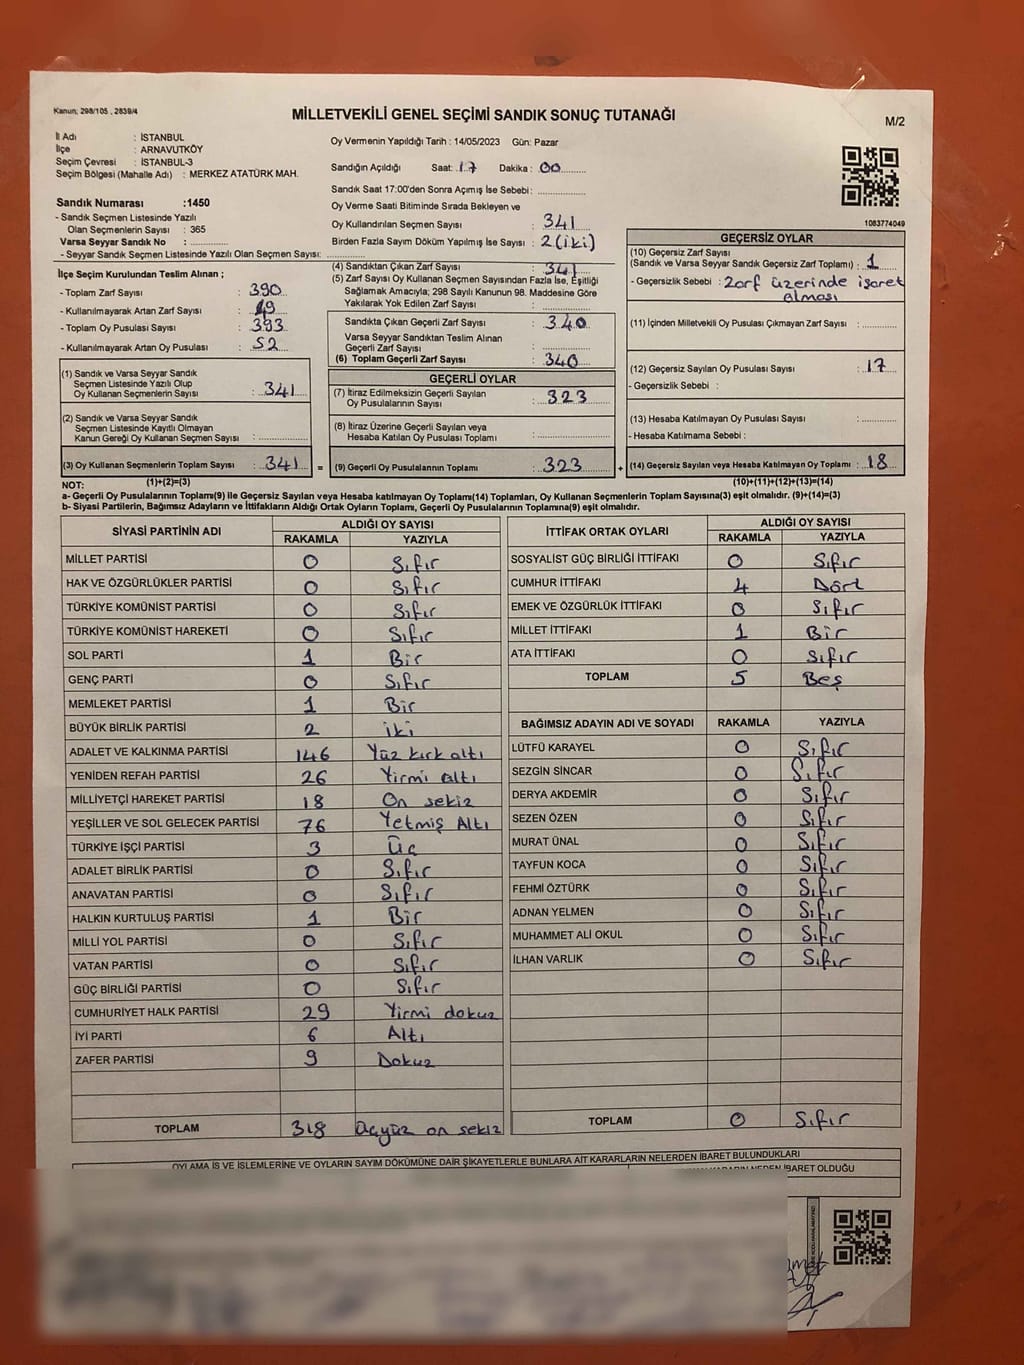 Kanun; 298/105 , 2839/4
MİLLETVEKİLİ GENEL SEÇİMİ SANDIK SONUÇ TUTANAĞI
M/2
İl Adı : İSTANBUL
İlçe : ARNAVUTKÖY
Seçim Çevresi : İSTANBUL-3
Seçim Bölgesi (Mahalle Adı) : MERKEZ ATATÜRK MAH.
Sandık Numarası :1450
- Sandık Seçmen Listesinde Yazılı
Olan Seçmenlerin Sayısı : 365
Varsa Seyyar Sandık No : ..............
- Seyyar Sandık Seçmen Listesinde Yazılı Olan Seçmen Sayısı: ..............
Oy Vermenin Yapıldığı Tarih : 14/05/2023 Gün: Pazar
Sandığın Açıldığı Saat: 17 Dakika : 00
Sandık Saat 17:00'den Sonra Açımış İse Sebebi: ..............
Oy Verme Saati Bitiminde Sırada Bekleyen ve
Oy Kullandırılan Seçmen Sayısı : 341
Birden Fazla Sayım Döküm Yapılmış İse Sayısı : 2 (iki)
1083774049
İlçe Seçim Kurulundan Teslim Alınan ;
- Toplam Zarf Sayısı : 390
- Kullanılmayarak Artan Zarf Sayısı : 49
- Toplam Oy Pusulası Sayısı : 393
- Kullanılmayarak Artan Oy Pusulası : 52
(1) Sandık ve Varsa Seyyar Sandık
Seçmen Listesinde Yazılı Olup
Oy Kullanan Seçmenlerin Sayısı : 341
(2) Sandık ve Varsa Seyyar Sandık
Seçmen Listesinde Kayıtlı Olmayan
Kanun Gereği Oy Kullanan Seçmen Sayısı : ..............
(3) Oy Kullanan Seçmenlerin Toplam Sayısı : 341 =
(4) Sandıktan Çıkan Zarf Sayısı : 341
(5) Zarf Sayısı Oy Kullanan Seçmen Sayısından Fazla İse, Eşitliği
Sağlamak Amacıyla; 298 Sayılı Kanunun 98. Maddesine Göre
Yakılarak Yok Edilen Zarf Sayısı : ..............
Sandıkta Çıkan Geçerli Zarf Sayısı : 340
Varsa Seyyar Sandıktan Teslim Alınan
Geçerli Zarf Sayısı : ..............
(6) Toplam Geçerli Zarf Sayısı : 340
GEÇERLİ OYLAR
(7) İtiraz Edilmeksizin Geçerli Sayılan
Oy Pusulalarının Sayısı : 323
(8) İtiraz Üzerine Geçerli Sayılan veya
Hesaba Katılan Oy Pusulası Toplamı : ..............
(9) Geçerli Oy Pusulalarının Toplamı : 323 +
GEÇERSİZ OYLAR
(10) Geçersiz Zarf Sayısı
(Sandık ve Varsa Seyyar Sandık Geçersiz Zarf Toplamı) : 1
- Geçersizlik Sebebi : Zarf üzerinde işaret
olması
(11) İçinden Milletvekili Oy Pusulası Çıkmayan Zarf Sayısı : ..............
(12) Geçersiz Sayılan Oy Pusulası Sayısı : 17
- Geçersizlik Sebebi :
(13) Hesaba Katılmayan Oy Pusulası Sayısı : ..............
- Hesaba Katılmama Sebebi :
(14) Geçersiz Sayılan veya Hesaba Katılmayan Oy Toplamı : 18
NOT: (1)+(2)=(3) (10)+(11)+(12)+(13)=(14)
a- Geçerli Oy Pusulalarının Toplamı(9) ile Geçersiz Sayılan veya Hesaba katılmayan Oy Toplamı(14) Toplamları, Oy Kullanan Seçmenlerin Toplam Sayısına(3) eşit olmalıdır. (9)+(14)=(3)
b- Siyasi Partilerin, Bağımsız Adayların ve İttifakların Aldığı Ortak Oyların Toplamı, Geçerli Oy Pusulalarının Toplamına(9) eşit olmalıdır.
SİYASİ PARTİNİN ADI ALDIĞI OY SAYISI
RAKAMLA YAZIYLA
MİLLET PARTİSİ 0 Sıfır
HAK VE ÖZGÜRLÜKLER PARTİSİ 0 Sıfır
TÜRKİYE KOMÜNİST PARTİSİ 0 Sıfır
TÜRKİYE KOMÜNİST HAREKETİ 0 Sıfır
SOL PARTİ 1 Bir
GENÇ PARTİ 0 Sıfır
MEMLEKET PARTİSİ 1 Bir
BÜYÜK BİRLİK PARTİSİ 2 iki
ADALET VE KALKINMA PARTİSİ 146 Yüz kırk altı
YENİDEN REFAH PARTİSİ 26 Yirmi altı
MİLLİYETÇİ HAREKET PARTİSİ 18 On sekiz
YEŞİLLER VE SOL GELECEK PARTİSİ 76 Yetmiş Altı
TÜRKİYE İŞÇİ PARTİSİ 3 Üç
ADALET BİRLİK PARTİSİ 0 Sıfır
ANAVATAN PARTİSİ 0 Sıfır
HALKIN KURTULUŞ PARTİSİ 1 Bir
MİLLİ YOL PARTİSİ 0 Sıfır
VATAN PARTİSİ 0 Sıfır
GÜÇ BİRLİĞİ PARTİSİ 0 Sıfır
CUMHURİYET HALK PARTİSİ 29 Yirmi dokuz
İYİ PARTİ 6 Altı
ZAFER PARTİSİ 9 Dokuz
TOPLAM 318 Üçyüz on sekiz
İTTİFAK ORTAK OYLARI ALDIĞI OY SAYISI
RAKAMLA YAZIYLA
SOSYALİST GÜÇ BİRLİĞİ İTTİFAKI 0 Sıfır
CUMHUR İTTİFAKI 4 Dört
EMEK VE ÖZGÜRLÜK İTTİFAKI 0 Sıfır
MİLLET İTTİFAKI 1 Bir
ATA İTTİFAKI 0 Sıfır
TOPLAM 5 Beş
BAĞIMSIZ ADAYIN ADI VE SOYADI RAKAMLA YAZIYLA
LÜTFÜ KARAYEL 0 Sıfır
SEZGİN SİNCAR 0 Sıfır
DERYA AKDEMİR 0 Sıfır
SEZEN ÖZEN 0 Sıfır
MURAT ÜNAL 0 Sıfır
TAYFUN KOCA 0 Sıfır
FEHMİ ÖZTÜRK 0 Sıfır
ADNAN YELMEN 0 Sıfır
MUHAMMET ALİ OKUL 0 Sıfır
İLHAN VARLIK 0 Sıfır
TOPLAM 0 Sıfır
OYLAMA İŞ VE İŞLEMLERİNE VE OYLARIN SAYIM DÖKÜMÜNE DAİR ŞİKAYETLERLE BUNLARA AİT KARARLARIN NELERDEN İBARET BULUNDUKLARI
NEDEN İBARET OLDUĞU